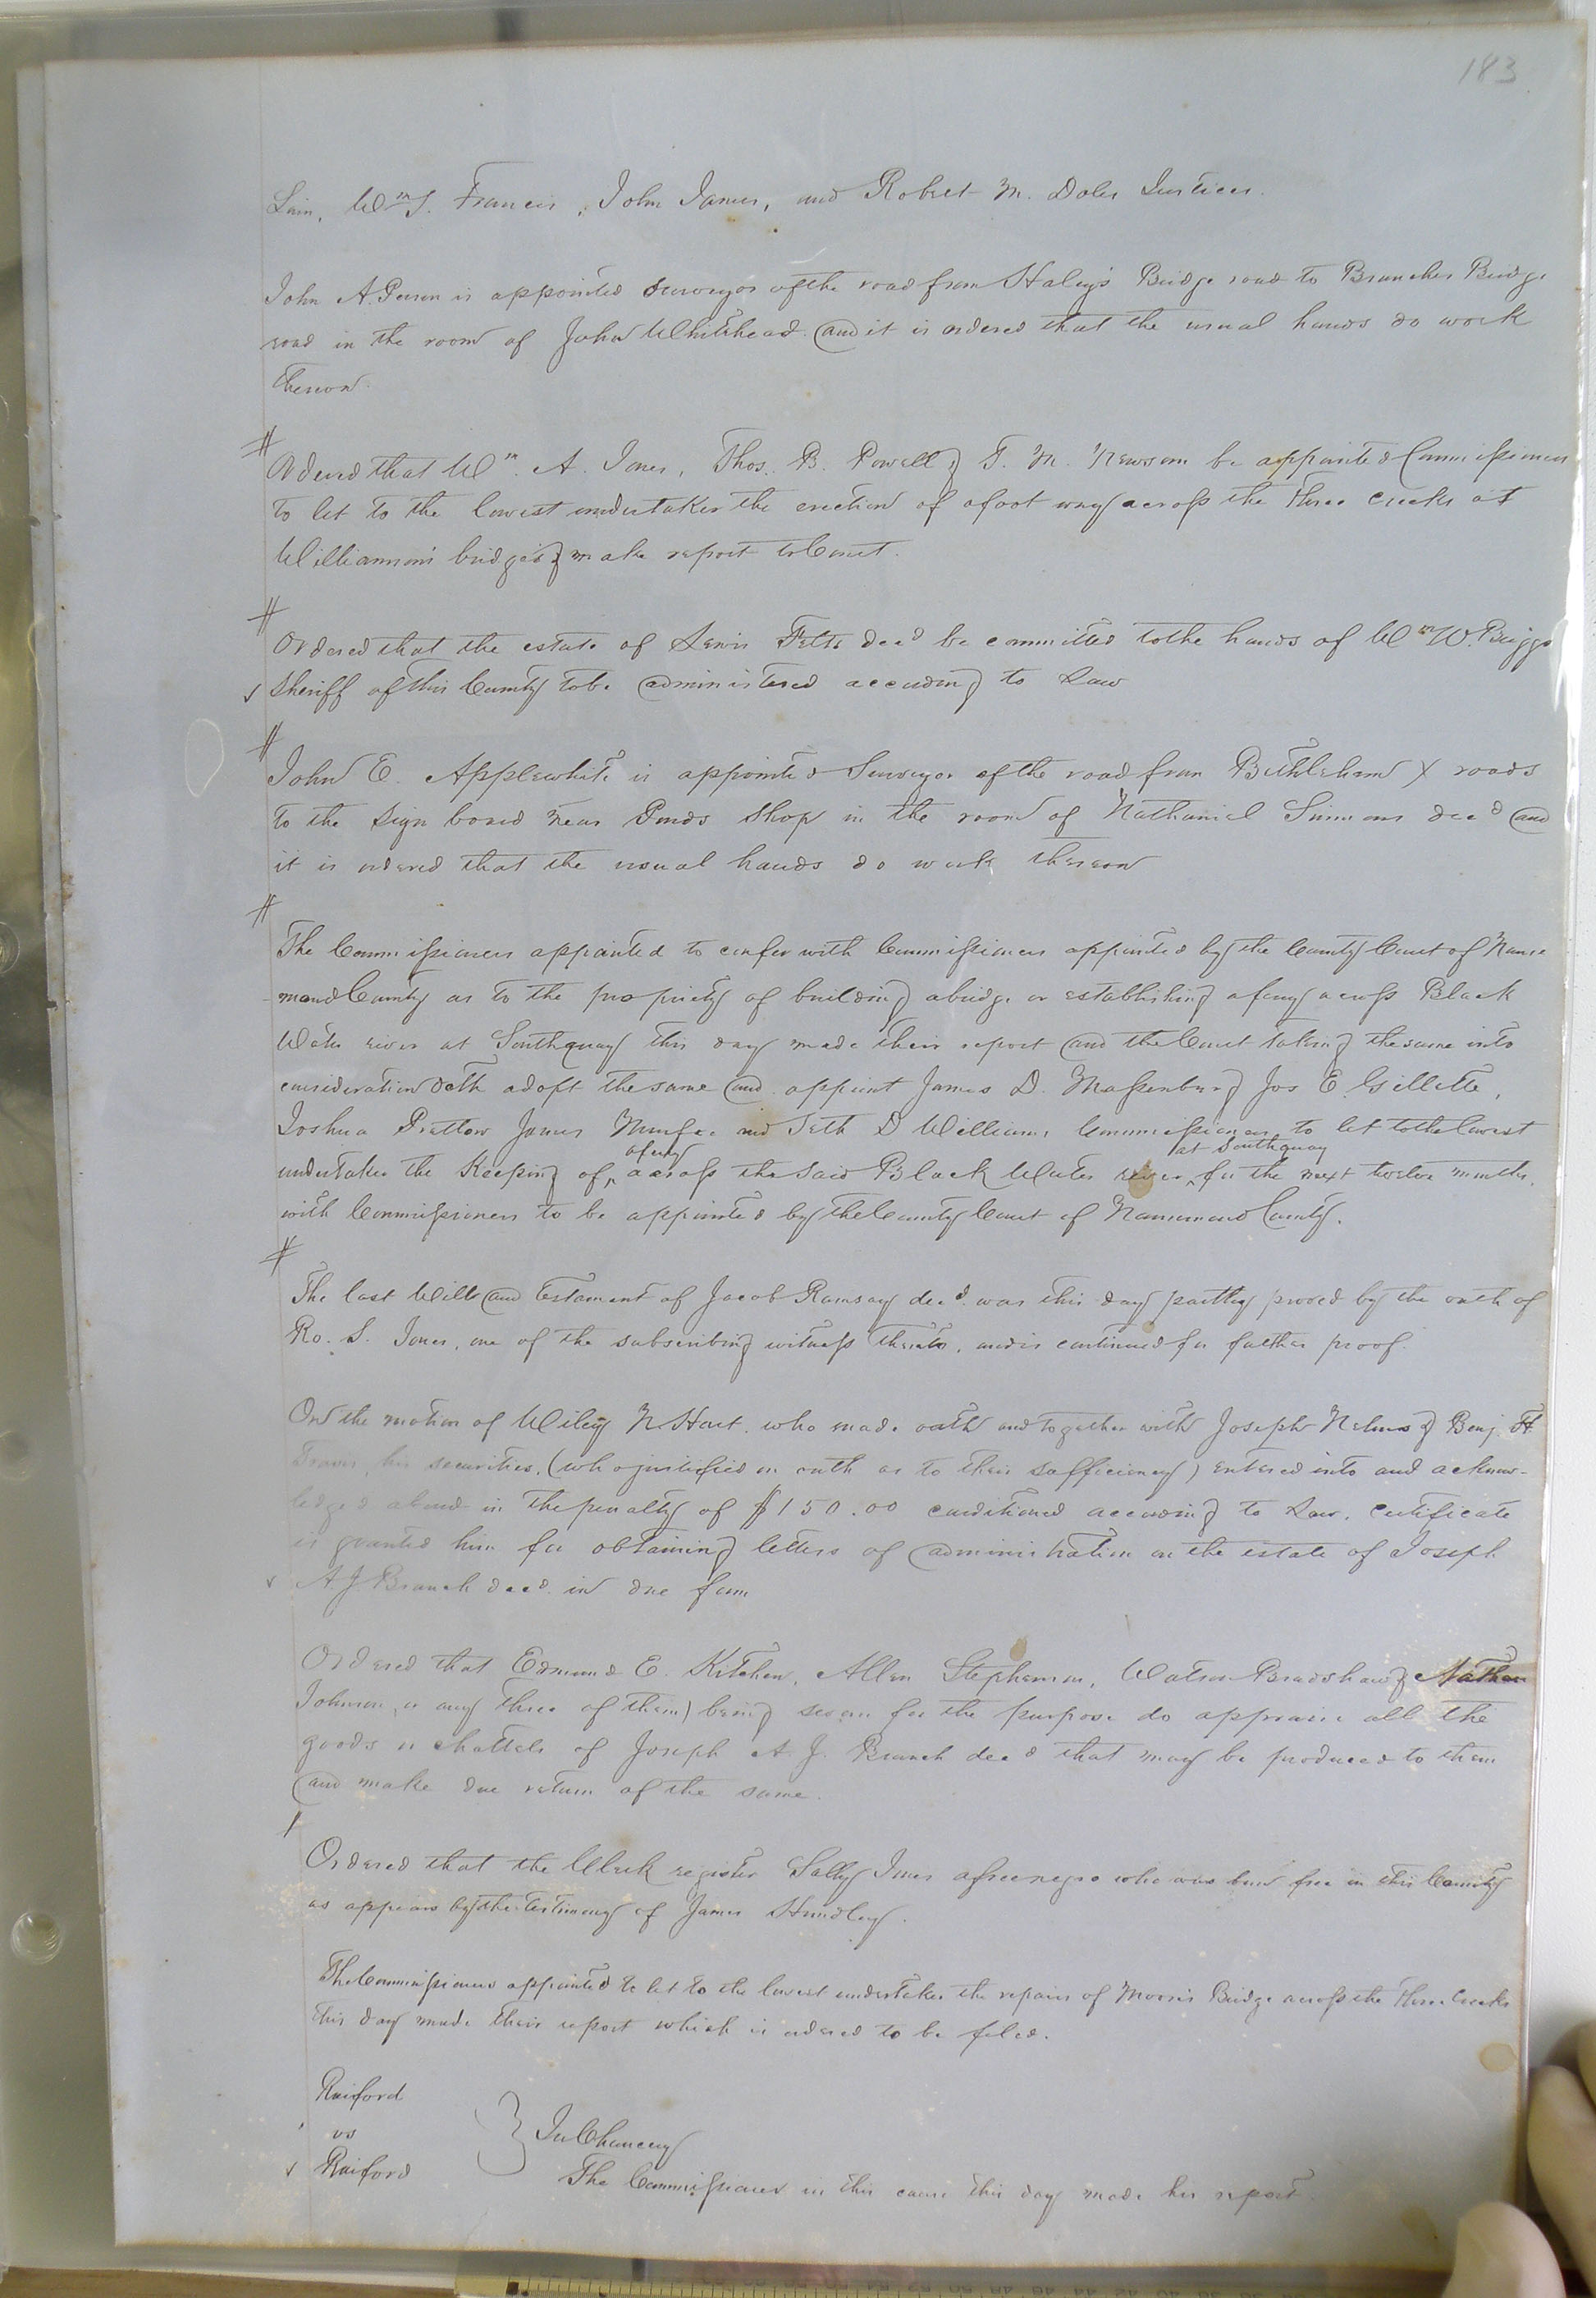 183
Lain, Wm S. Francis, John James, and Robert M. Doles Justices.
John A. Person is appointed Surveyor of the road from Haley's Bridge road to Branches Bridge
road in the room of John Whitehead and it is ordered that the usual hands do work
thereon.
Ordered that Wm. A. Jones, Thos. B. Powell & T. M. Newsom be appointed Commissioners
to let to the lowest undertaker the erection of a foot way across the Three Creeks at
Williamson's bridge & make report to Court.
Ordered that the estate of Lewis Felts decd be committed to the hands of Wm W. Briggs
Sheriff of this County to be administered according to Law
John E. Applewhite is appointed Surveyor of the road from Bethlehem X roads
to the Sign board near Ponds Shop in the room of Nathaniel Simmons decd and
it is ordered that the usual hands do work thereon
The Commissioners appointed to confer with Commissioners appointed by the County Court of Nanse
mond County as to the propriety of building a bridge or establishing a ferry across Black
Water river at Southquay this day made their report and the Court taking the same into
consideration doth adopt the same and appoint James D. Massenburg Jos E. Gillette,
Joshua Pretlow James Murfee and Seth D Williams Commissioners to let to the lowest
a ferry at Southquay
undertaker the Keeping of across the said Black Water river for the next twelve months,
with Commissioners to be appointed by the County Court of Nansemond County.
The last Will and testament of Jacob Ramsay decd. was this day partly proved by the oath of
Ro. S. Jones, one of the subscribing witness thereto, and is continued for further proof.
On the motion of Wiley N. Hart. who made oath and together with Joseph Nelms & Benj. H
his securities, (who justified on oath as to their sufficiency) entered into and acknow-
ledged a bond in the penalty of $150.00 conditioned according to Law. Certificate
is granted him for obtaining letters of administration on the estate of Joseph
A. J Branch decd. in due form
Ordered that Edmund E. Kitchen, Allen Stephenson, Watson Bradshaw & Nathan
Johnson, or any three of them) being sworn for the purpose do appraise all the
goods or chattels of Joseph A. J. Branch decd that may be produced to them
and make due return of the same.
Ordered that the Clerk register Sally Jones a free negro who was born free in this County
as appears by the testimony of James Hundley.
The Commissioners appointed to let to the lowest undertaker the repairs of Moores Bridge across the Three Creeks
this day made their report which is ordered to be filed.
Raiford
vs
Raiford
} In Chancery
The Commissioner in this cause this day made his report